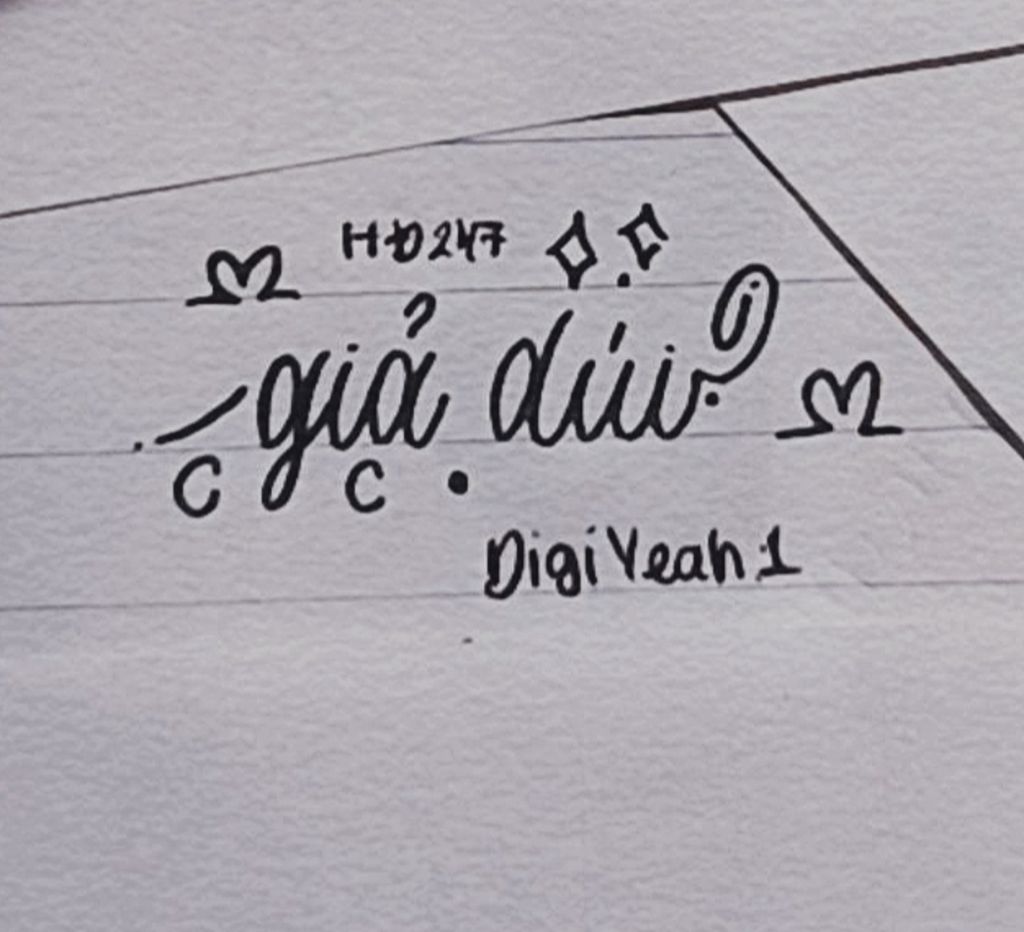 HĐ247
giả dúi?
c c .
DigiYeah1